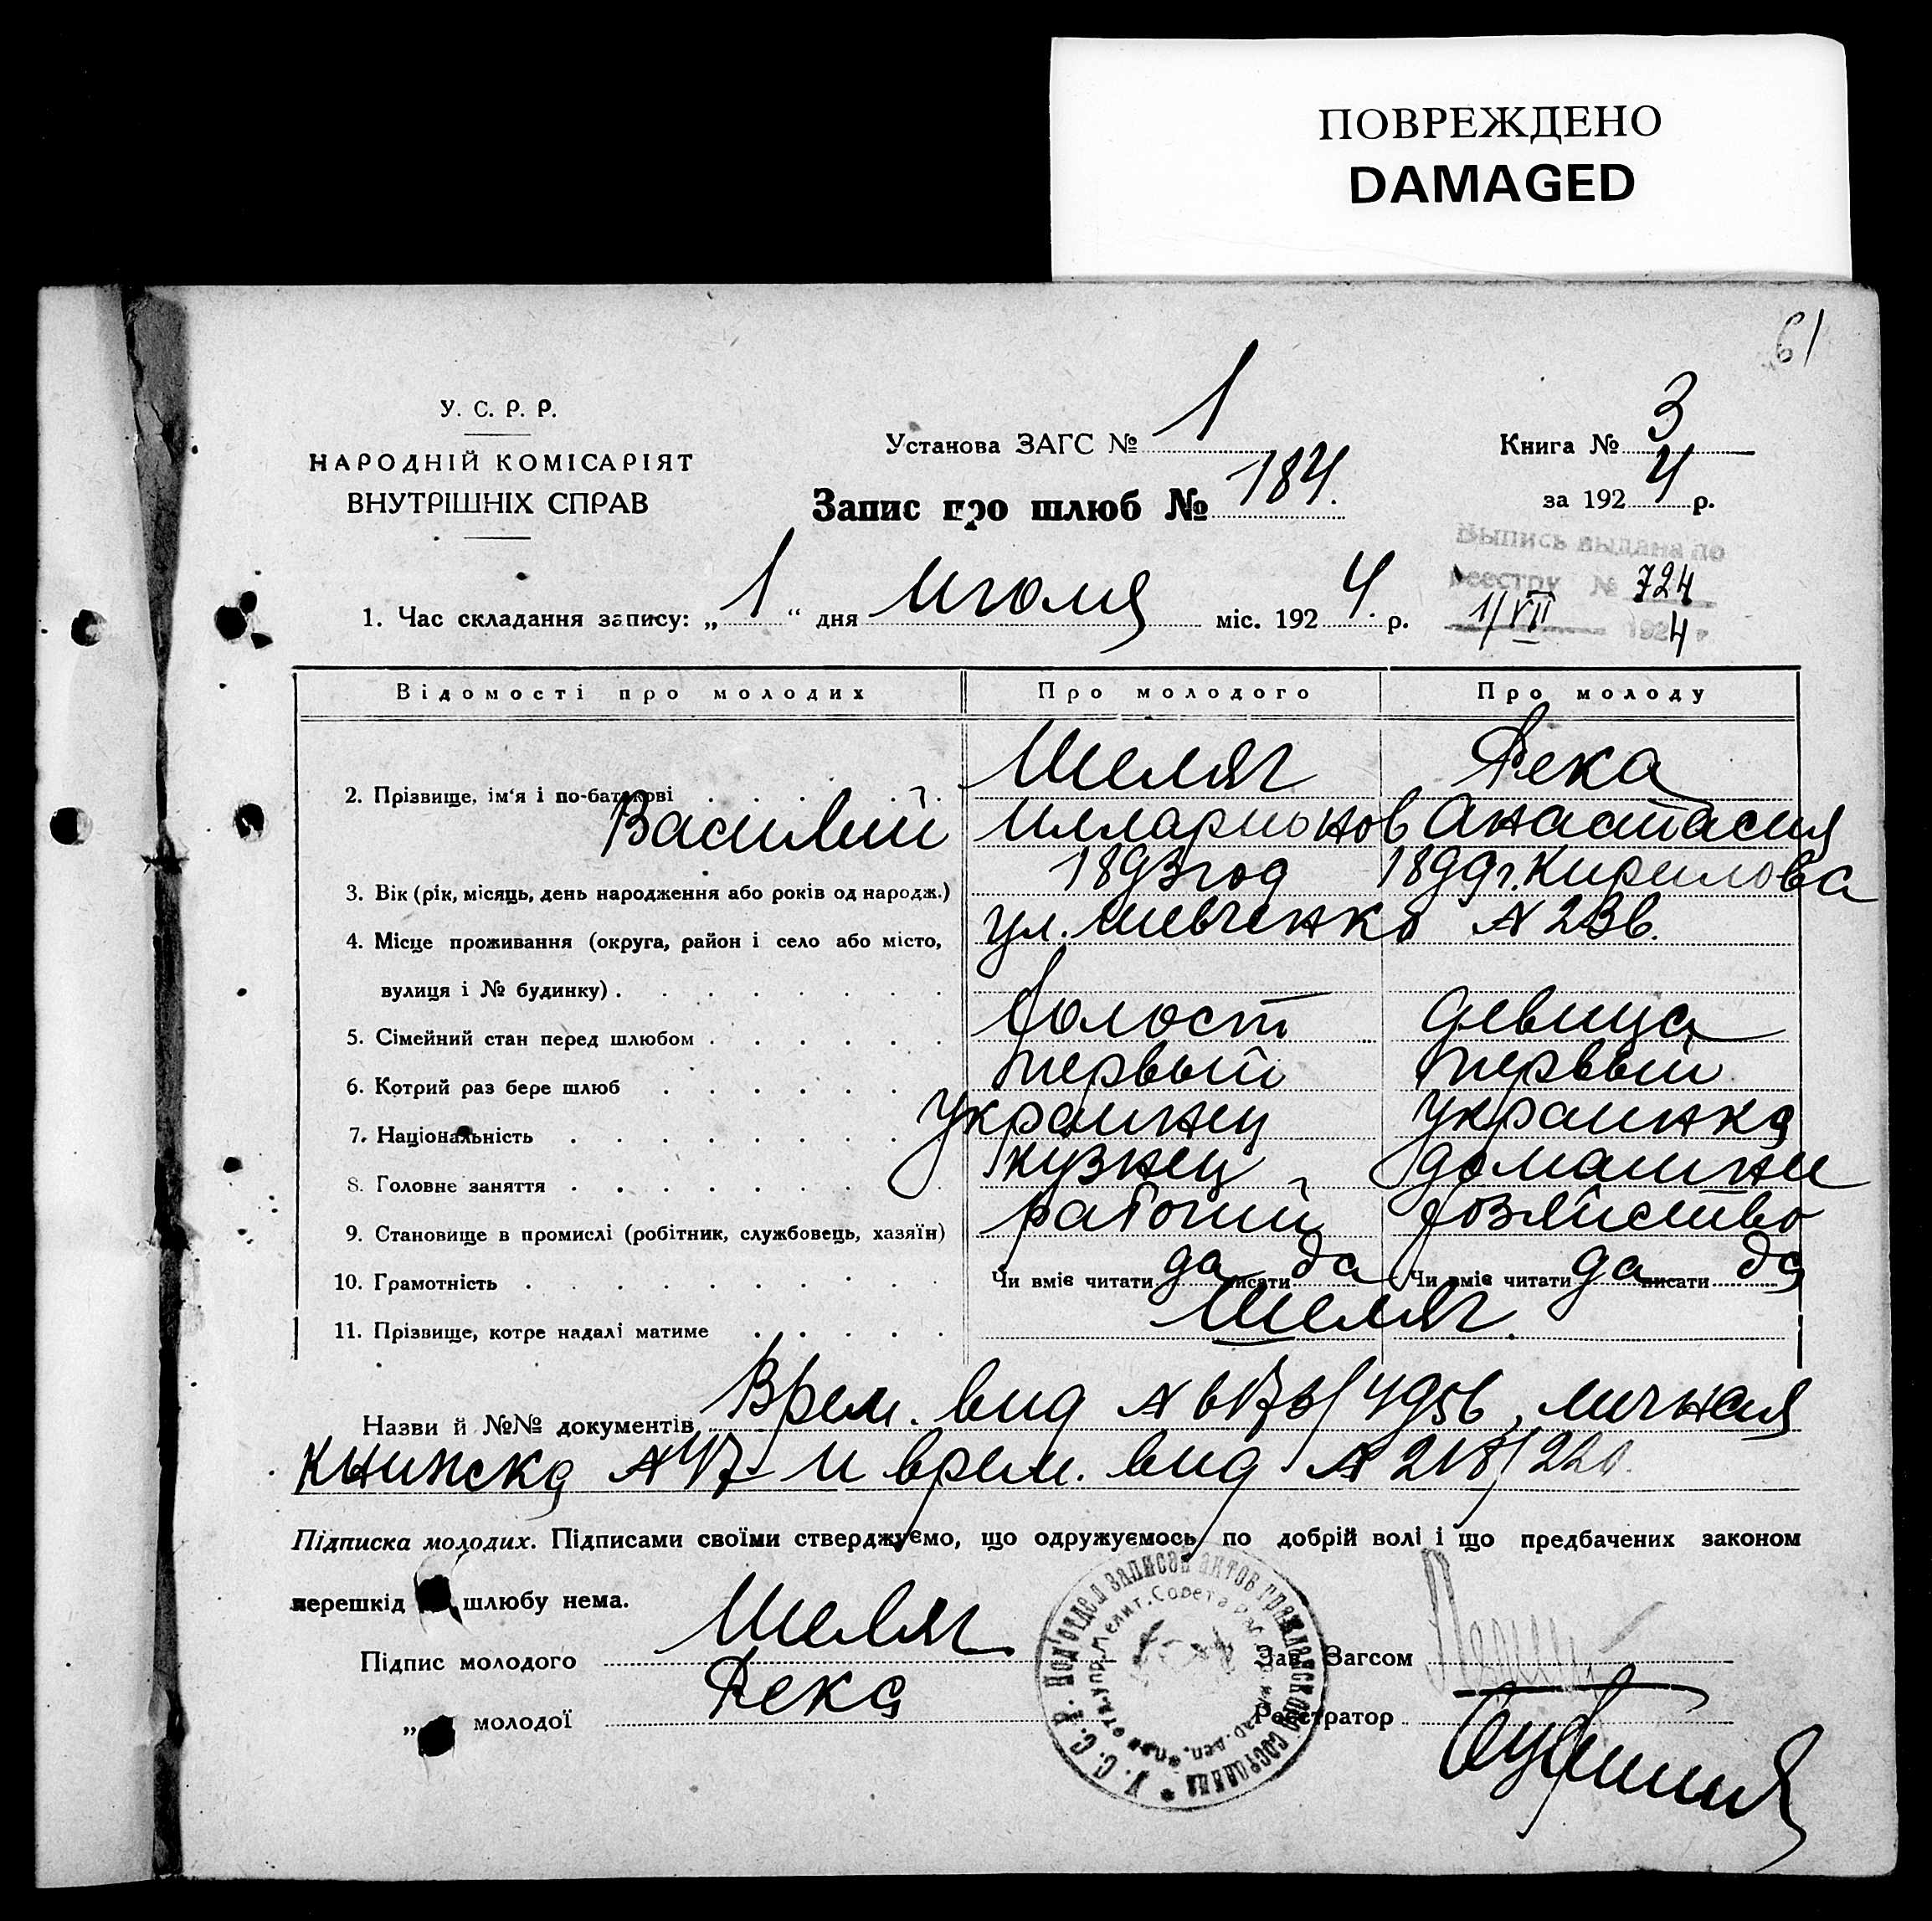 ПОВРЕЖДЕНО
DAMAGED
61
У. С. Р. Р.
НАРОДНІЙ КОМІСАРІЯТ
ВНУТРІШНІХ СПРАВ
Установа ЗАГС № 1
Книга № 3
Запис про шлюб № 184.
за 1924 р.
Выпись выдана по
реестру № 724
1/VII 1924 г
1. Час складання запису: „1“ дня Июля міс. 1924. р.
Відомості про молодих Про молодого Про молоду
2. Прізвище, ім'я і по-батькові Шеляг Река
Василий Илларионов Анастасия
3. Вік (рік, місяць, день народження або років од народж.) 1893 год 1899 г. Кирилова
4. Місце проживання (округа, район і село або місто, ул. Шевченко № 23б.
вулиця і № будинку)
5. Сімейний стан перед шлюбом холост девица
6. Котрий раз бере шлюб первый первый
7. Національність украинец украинка
8. Головне заняття кузнец домашнее
9. Становище в промислі (робітник, службовець, хазяїн) рабочий хозяйство
10. Грамотність Чи вміє читати да писати да Чи вміє читати да писати да
11. Прізвище, котре надалі матиме Шеляг.
Назви й №№ документів Врем. вид № 4956, личная
книжка № 47 и врем. вид № 218/220.
Підписка молодих. Підписами своїми стверджуємо, що одружуємось по добрій волі і що предбачених законом
перешкід шлюбу нема.
Підпис молодого Шеляг
Зав. Загсом
„ молодої Река
Реєстратор
У. С. С. Р. Под'отдел записей актов гражданского состояния